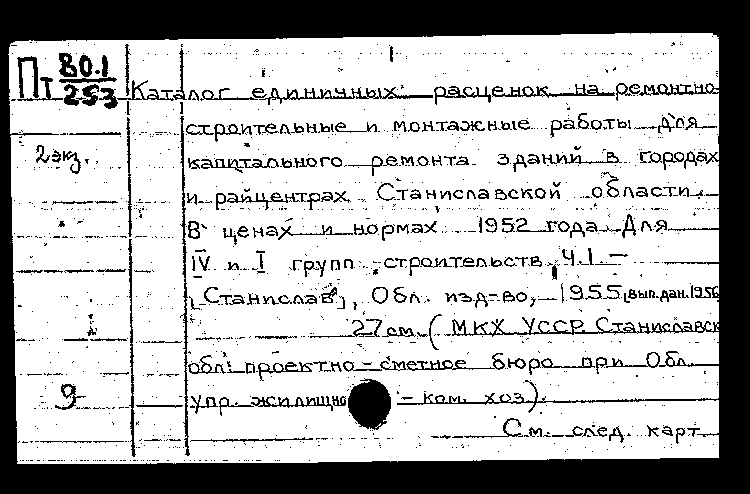 Пт 80.1
253
Каталог единичных расценок на ремонтно
строительные и монтажные работы для
2 экз.
капитального ремонта зданий в городах
и райцентрах Станиславской области.
В ценах и нормах 1952 года Для
IV и I групп строительств Ч.I —
[Станислав], Обл. изд-во, 1955 [вып. дан. 1956
27 см. (МКХ УССР Станиславск
обл. проектно-сметное бюро при Обл.
9
упр. жилищно - ком. хоз).
См. след. карт